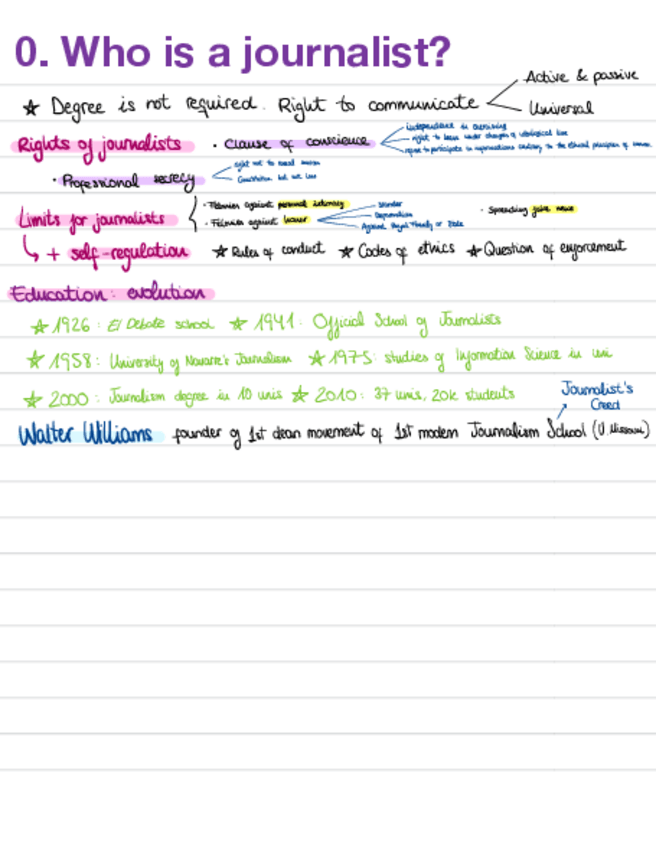 0. Who is a journalist?
☆ Degree is not required. Right to communicate
Active & passive
Universal
Rights of journalists
· Clause of conscience
independence in exercising
right to leave under changes of ideological line
· Professional secrecy
right not to reveal sources
Constitution but not law
Limits for journalists
· Felonies against personal intimacy
· Felonies against honor
Slander
Defamation
Against Royal Family or State
· Spreading fake news
↳ + self-regulation ☆ Rules of conduct ☆ Codes of ethics ☆ Question of enforcement
Education: evolution
☆ 1926: El Debate school ☆ 1941: Official School of Journalists
☆ 1958: University of Navarre's Journalism ☆ 1975: studies of Information Science in uni
☆ 2000: Journalism degree in 10 unis ☆ 2010: 37 unis, 20k students
Journalist's Creed
Walter Williams founder of 1st dean movement of 1st modern Journalism School (U. Missouri)